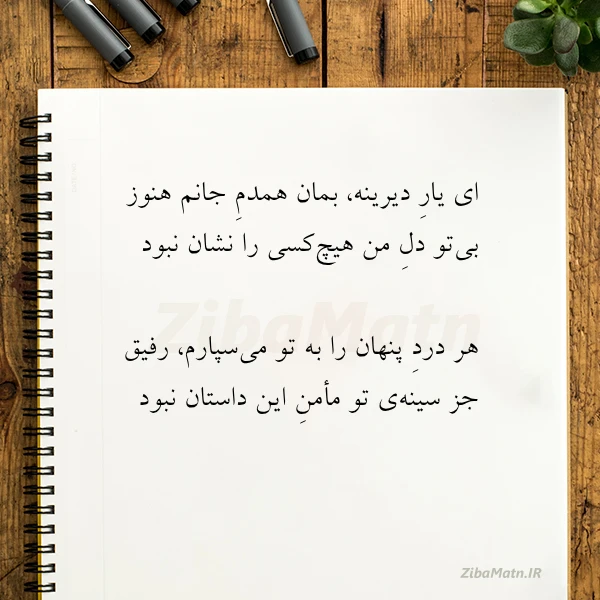 ای یارِ دیرینه، بمان همدمِ جانم هنوز
بی‌تو دلِ من هیچ‌کسی را نشان نبود
هر دردِ پنهان را به تو می‌سپارم، رفیق
جز سینه‌ی تو مأمنِ این داستان نبود
ZibaMatn
ZibaMatn.IR